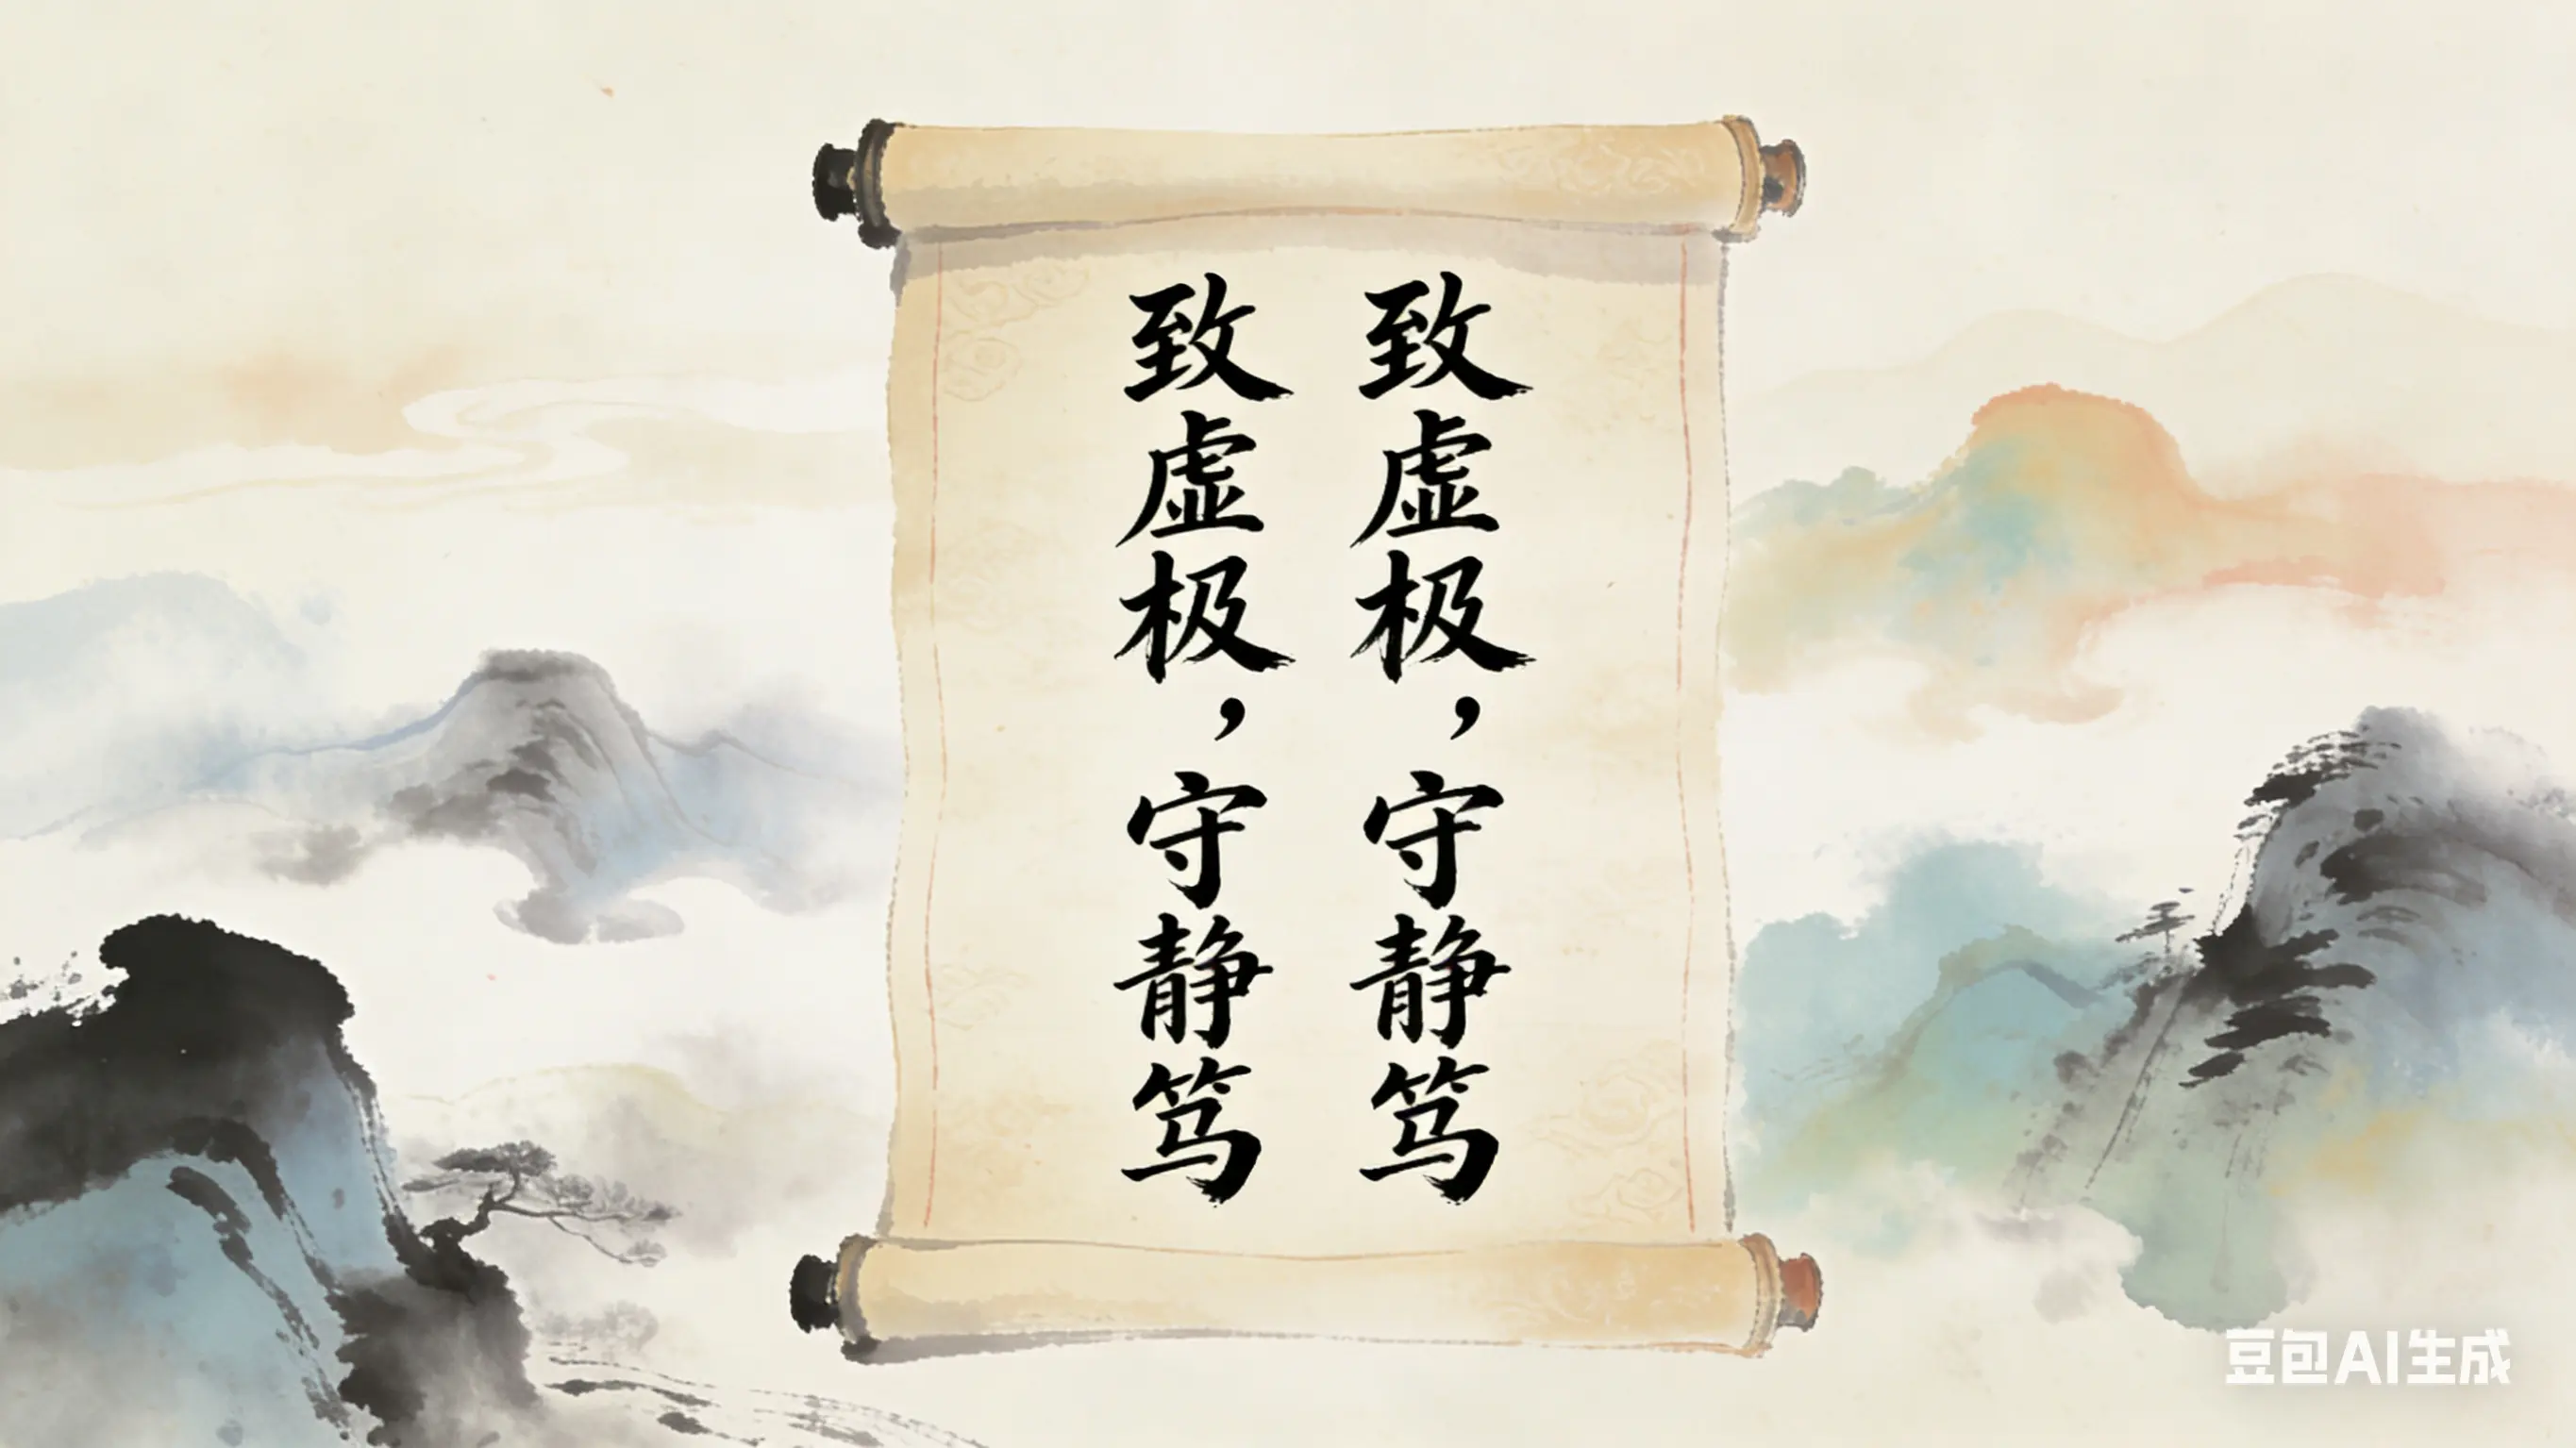 致虚极，守静笃
致虚极，守静笃
豆包AI生成